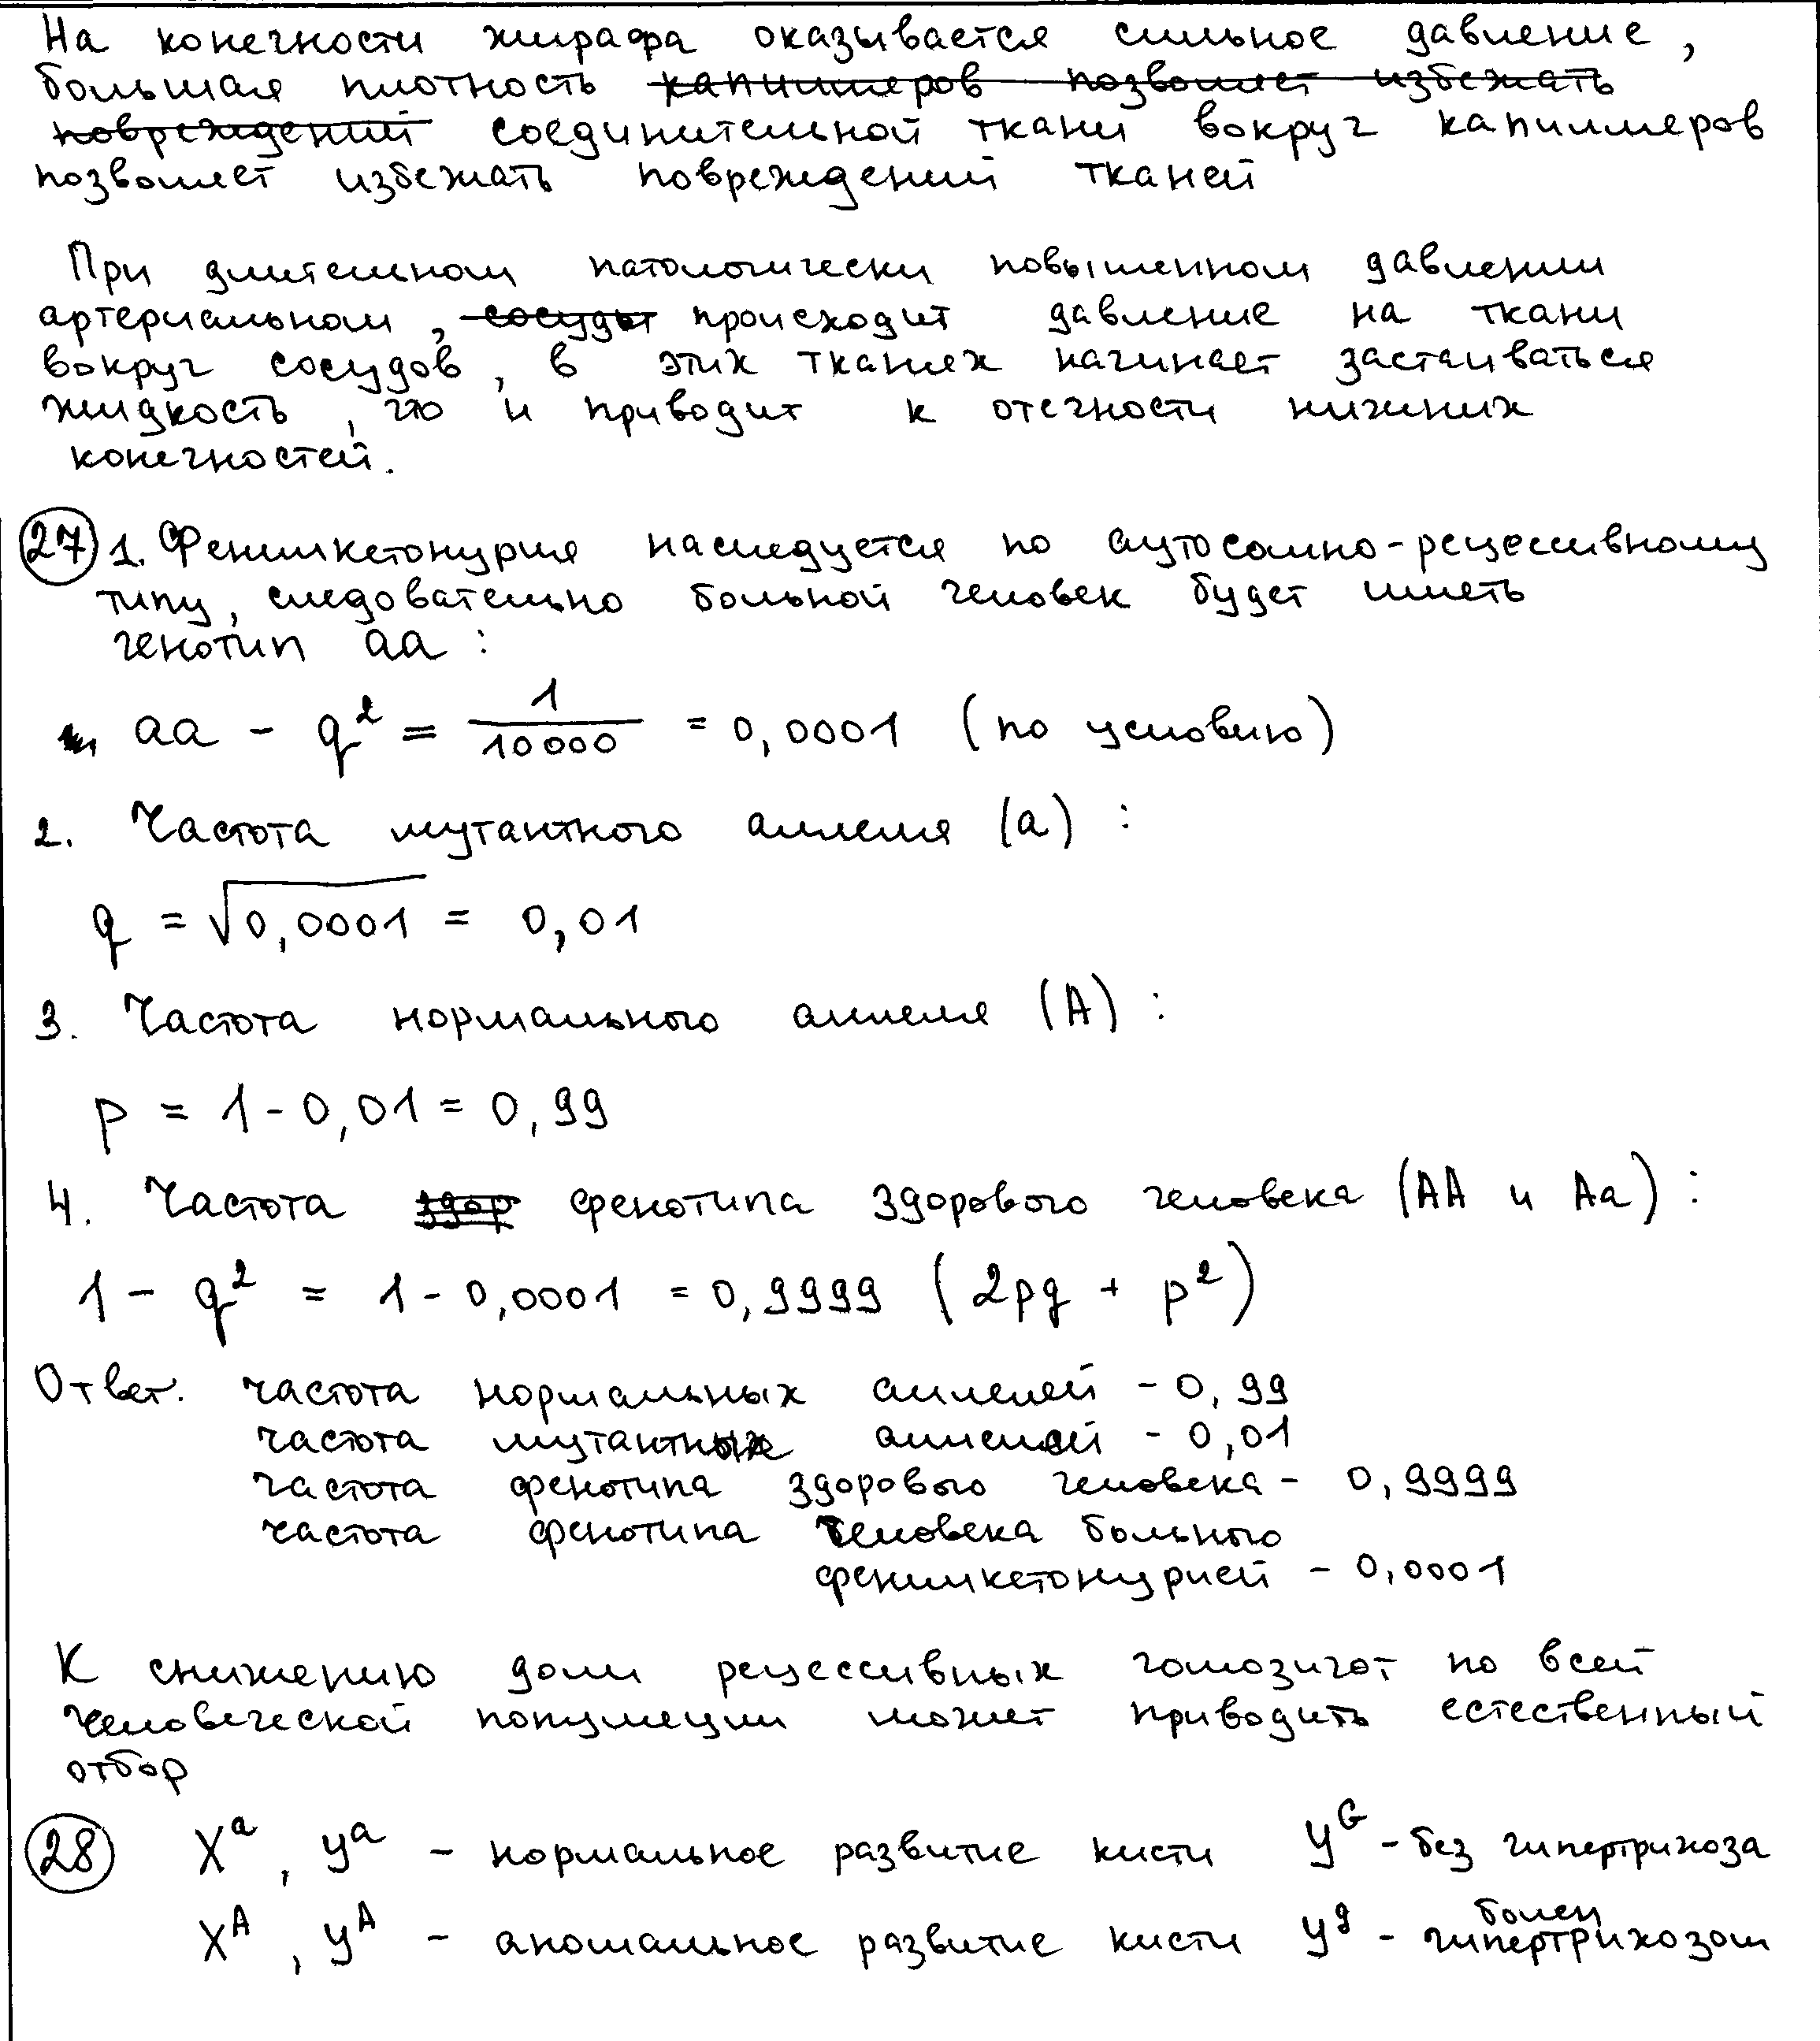 На конечности жирафа оказывается сильное давление,
большая плотность капилляров позволяет избежать
повреждений соединительной ткани вокруг капилляров
позволяет избежать повреждений тканей
При длительном патологически повышенном давлении
артериальном, сосуды происходит давление на ткани
вокруг сосудов, в этих тканях начинает застаиваться
жидкость, что и приводит к отечности нижних
конечностей.
27 1. Фенилкетонурия наследуется по аутосомно-рецессивному
типу, следовательно больной человек будет иметь
генотип aa :
aa - q² = 1/10000 = 0,0001 (по условию)
2. Частота мутантного аллеля (a) :
q = √0,0001 = 0,01
3. Частота нормального аллеля (A) :
p = 1 - 0,01 = 0,99
4. Частота здор фенотипа здорового человека (AA и Aa) :
1 - q² = 1 - 0,0001 = 0,9999 (2pq + p²)
Ответ. частота нормальных аллелей - 0,99
частота мутантных аллелей - 0,01
частота фенотипа здорового человека - 0,9999
частота фенотипа человека больного
фенилкетонурией - 0,0001
К снижению доли рецессивных гомозигот по всей
человеческой популяции может приводить естественный
отбор
28 Xᵃ, Yᵃ - нормальное развитие кисти Yᴳ - без гипертрихоза
Xᴬ, Yᴬ - аномальное развитие кисти Yᵍ - болен гипертрихозом